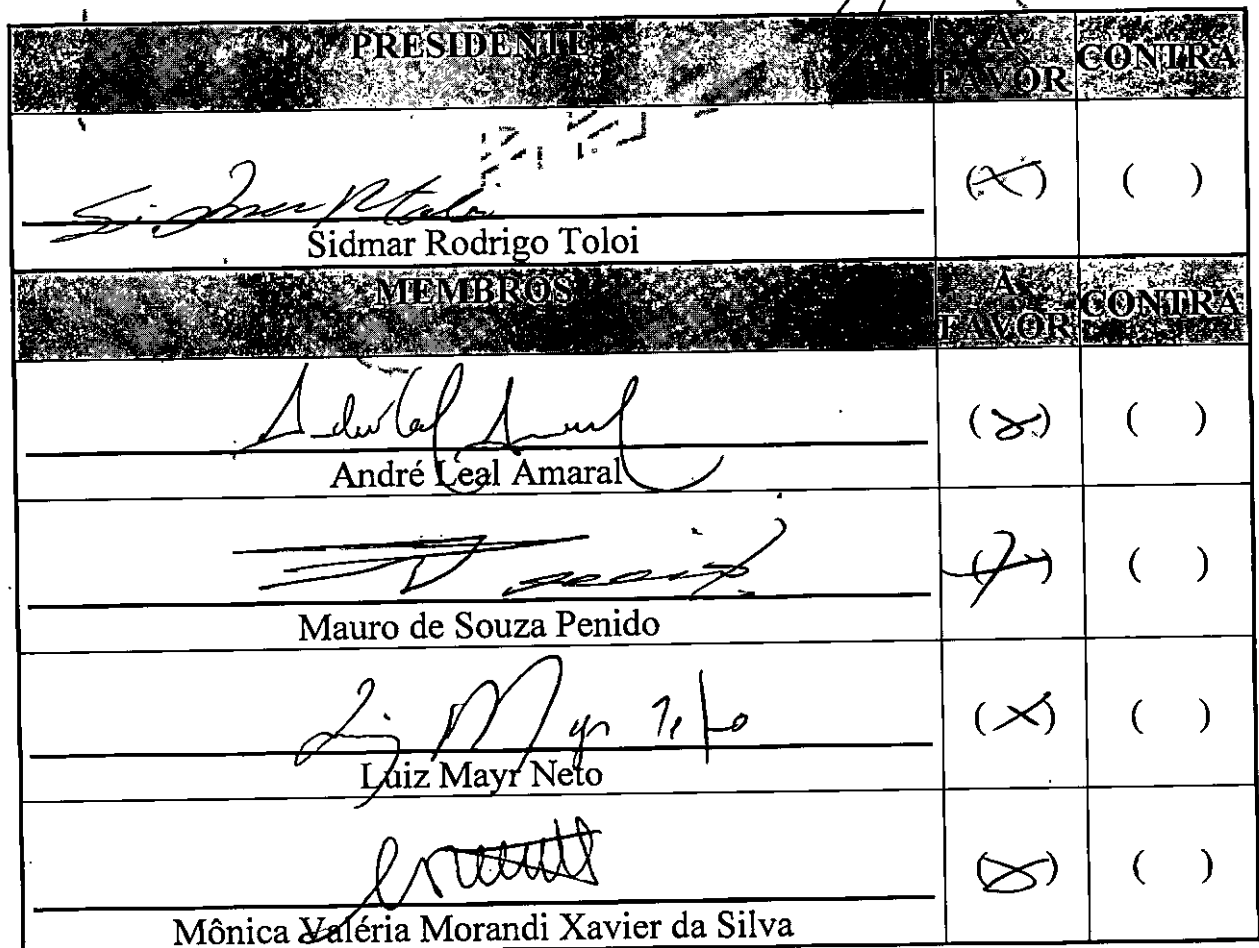 PRESIDENTE A FAVOR CONTRA
Sidmar Rodrigo Toloi (X) ( )
MEMBROS A FAVOR CONTRA
André Leal Amaral (X) ( )
Mauro de Souza Penido (X) ( )
Luiz Mayr Neto
Luiz Mayr Neto (X) ( )
Mônica Valéria Morandi Xavier da Silva (X) ( )